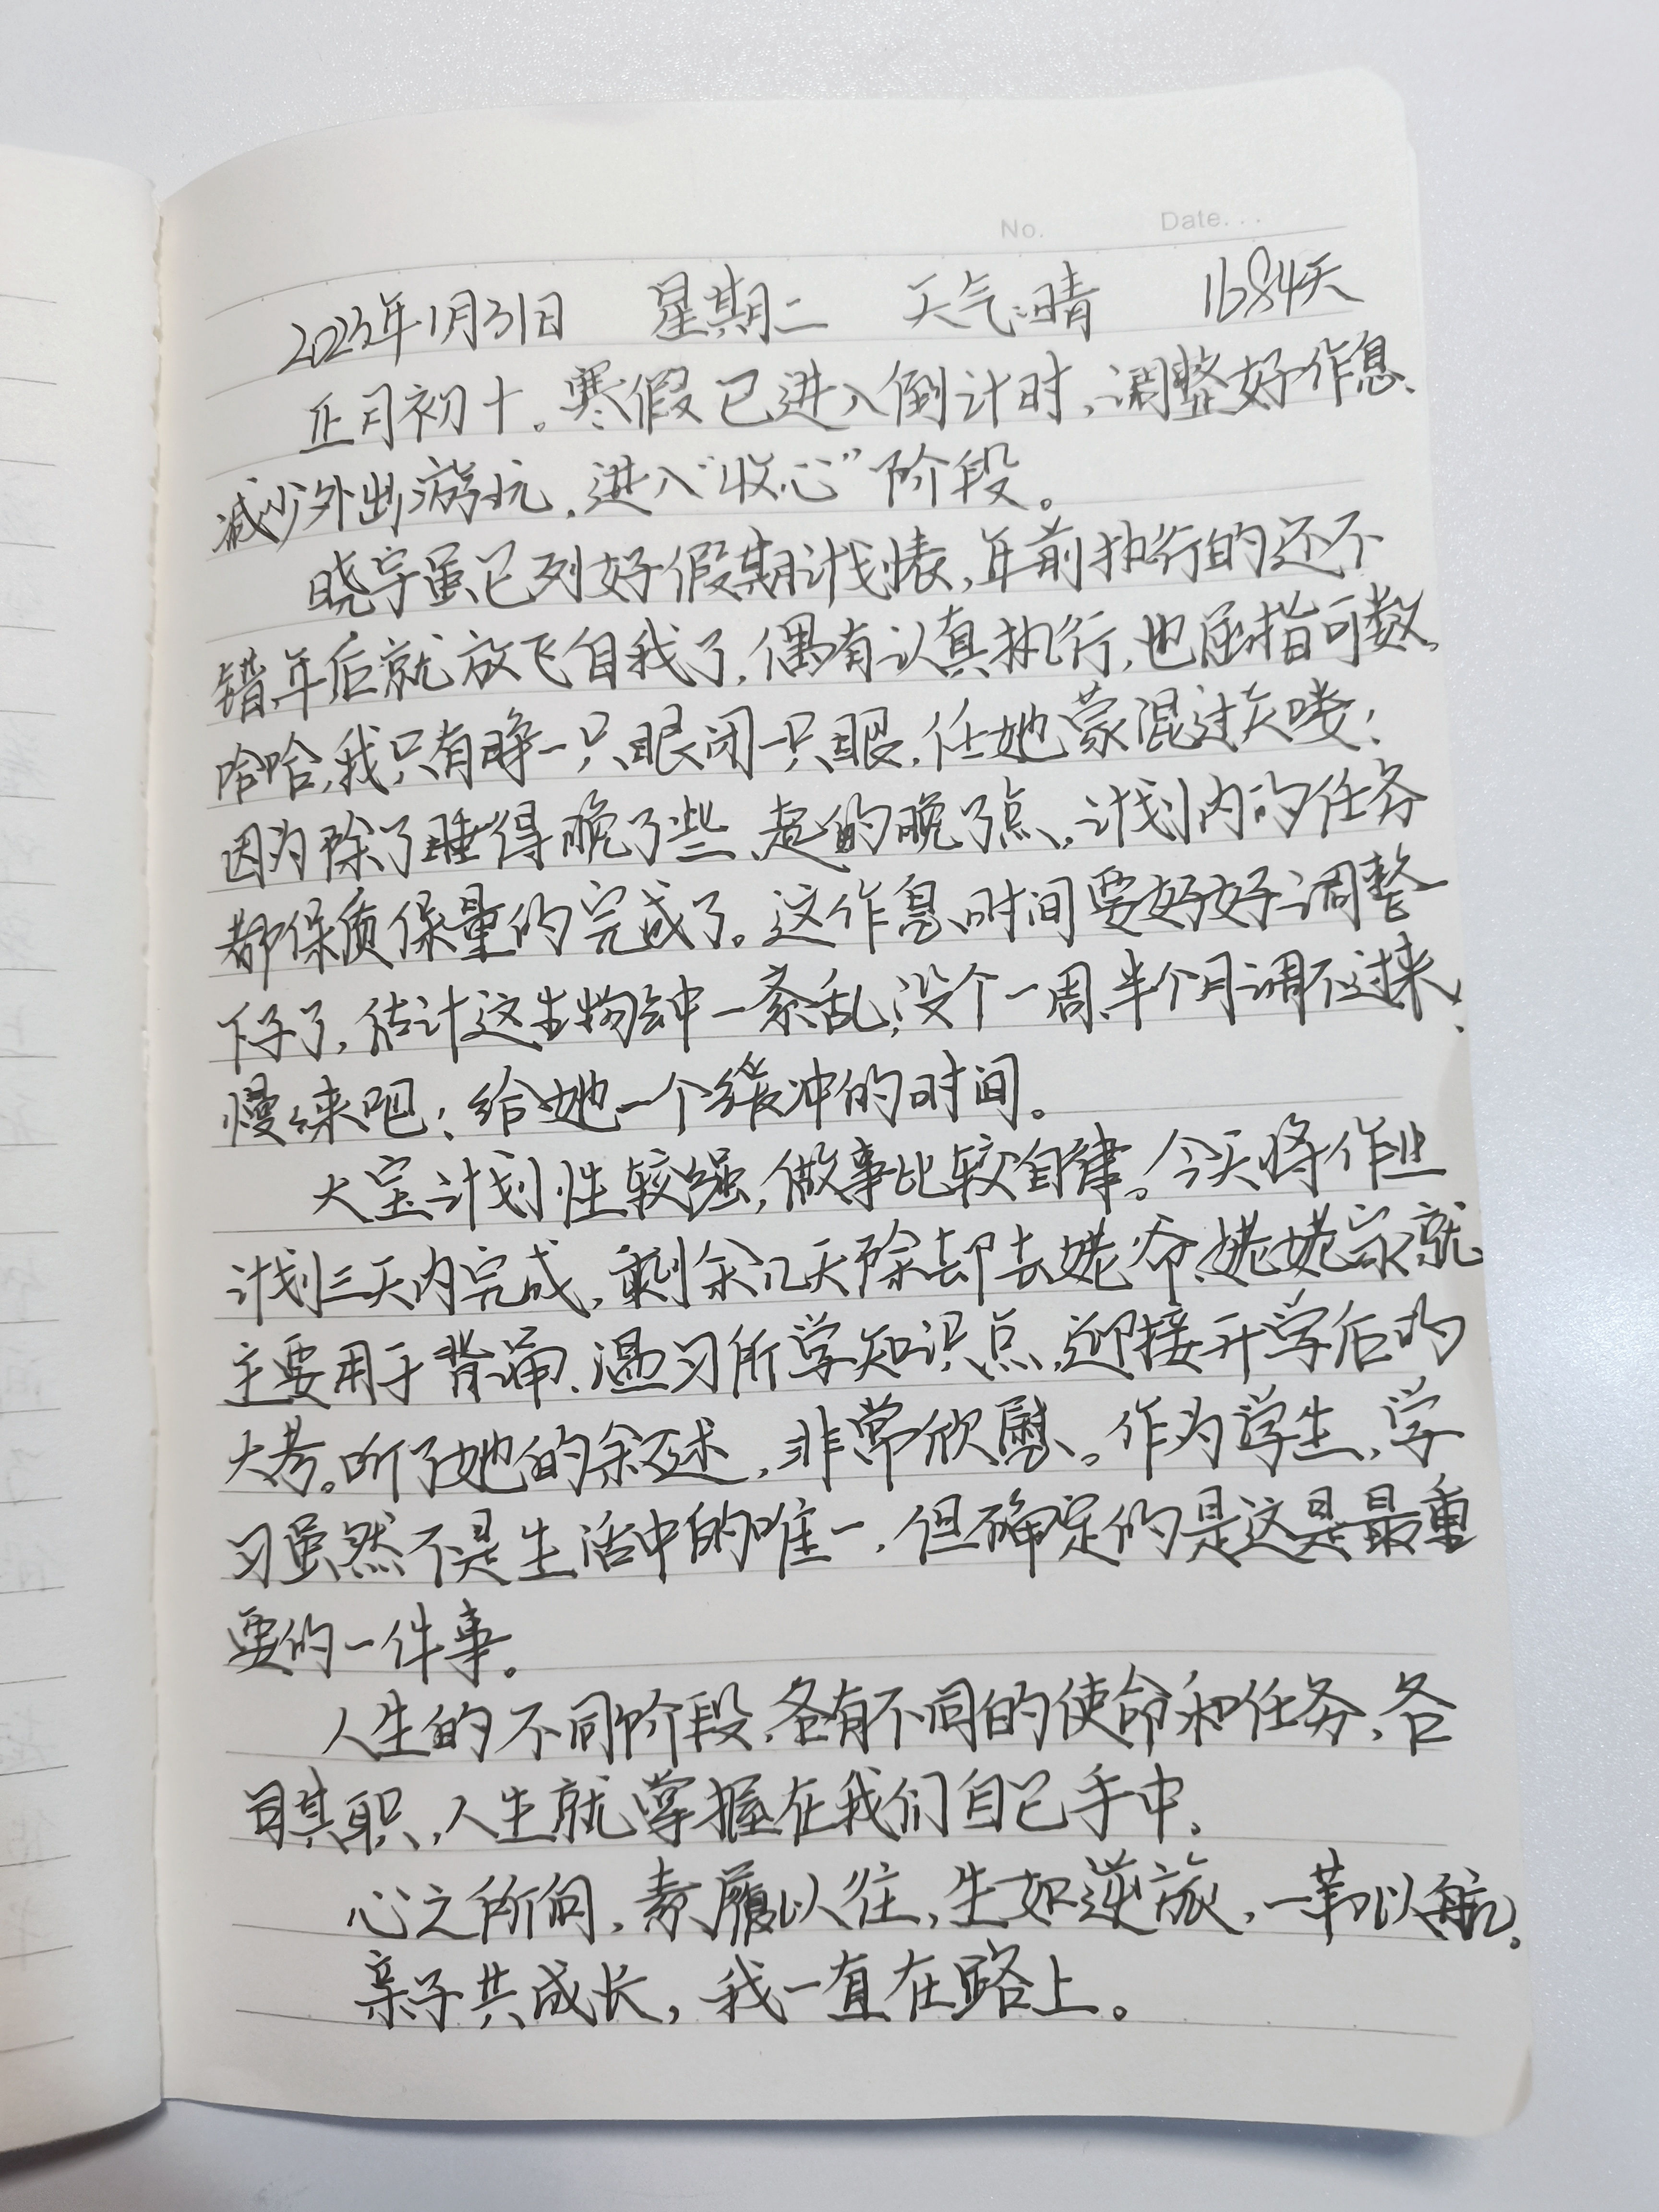 No. Date...
2023年1月31日 星期二 天气:晴 1684天
正月初十。寒假已进入倒计时,调整好作息、
减少外出游玩,进入“收心”阶段。
晓宇虽已列好假期计划表,年前执行的还不
错年后就放飞自我了,偶有认真执行,也屈指可数。
哈哈,我只有睁一只眼闭一只眼,任她蒙混过关喽!
因为除了睡得晚了些、起的晚了点,计划内的任务
都保质保量的完成了。这作息时间要好好调整
下子了,估计这生物钟一紊乱,没个一周半个月调不过来,
慢慢来吧!给她一个缓冲的时间。
大宝计划性较强,做事比较自律。今天将作业
计划三天内完成,剩余几天除却去姥爷、姥姥家就
主要用于背诵、温习所学知识点,迎接开学后的
大考。听了她的叙述,非常欣慰。作为学生,学
习虽然不是生活中的唯一,但确定的是这是最重
要的一件事。
人生的不同阶段,各有不同的使命和任务,各
司其职,人生就掌握在我们自己手中。
心之所向,素履以往,生如逆旅,一苇以航。
亲子共成长,我一直在路上。